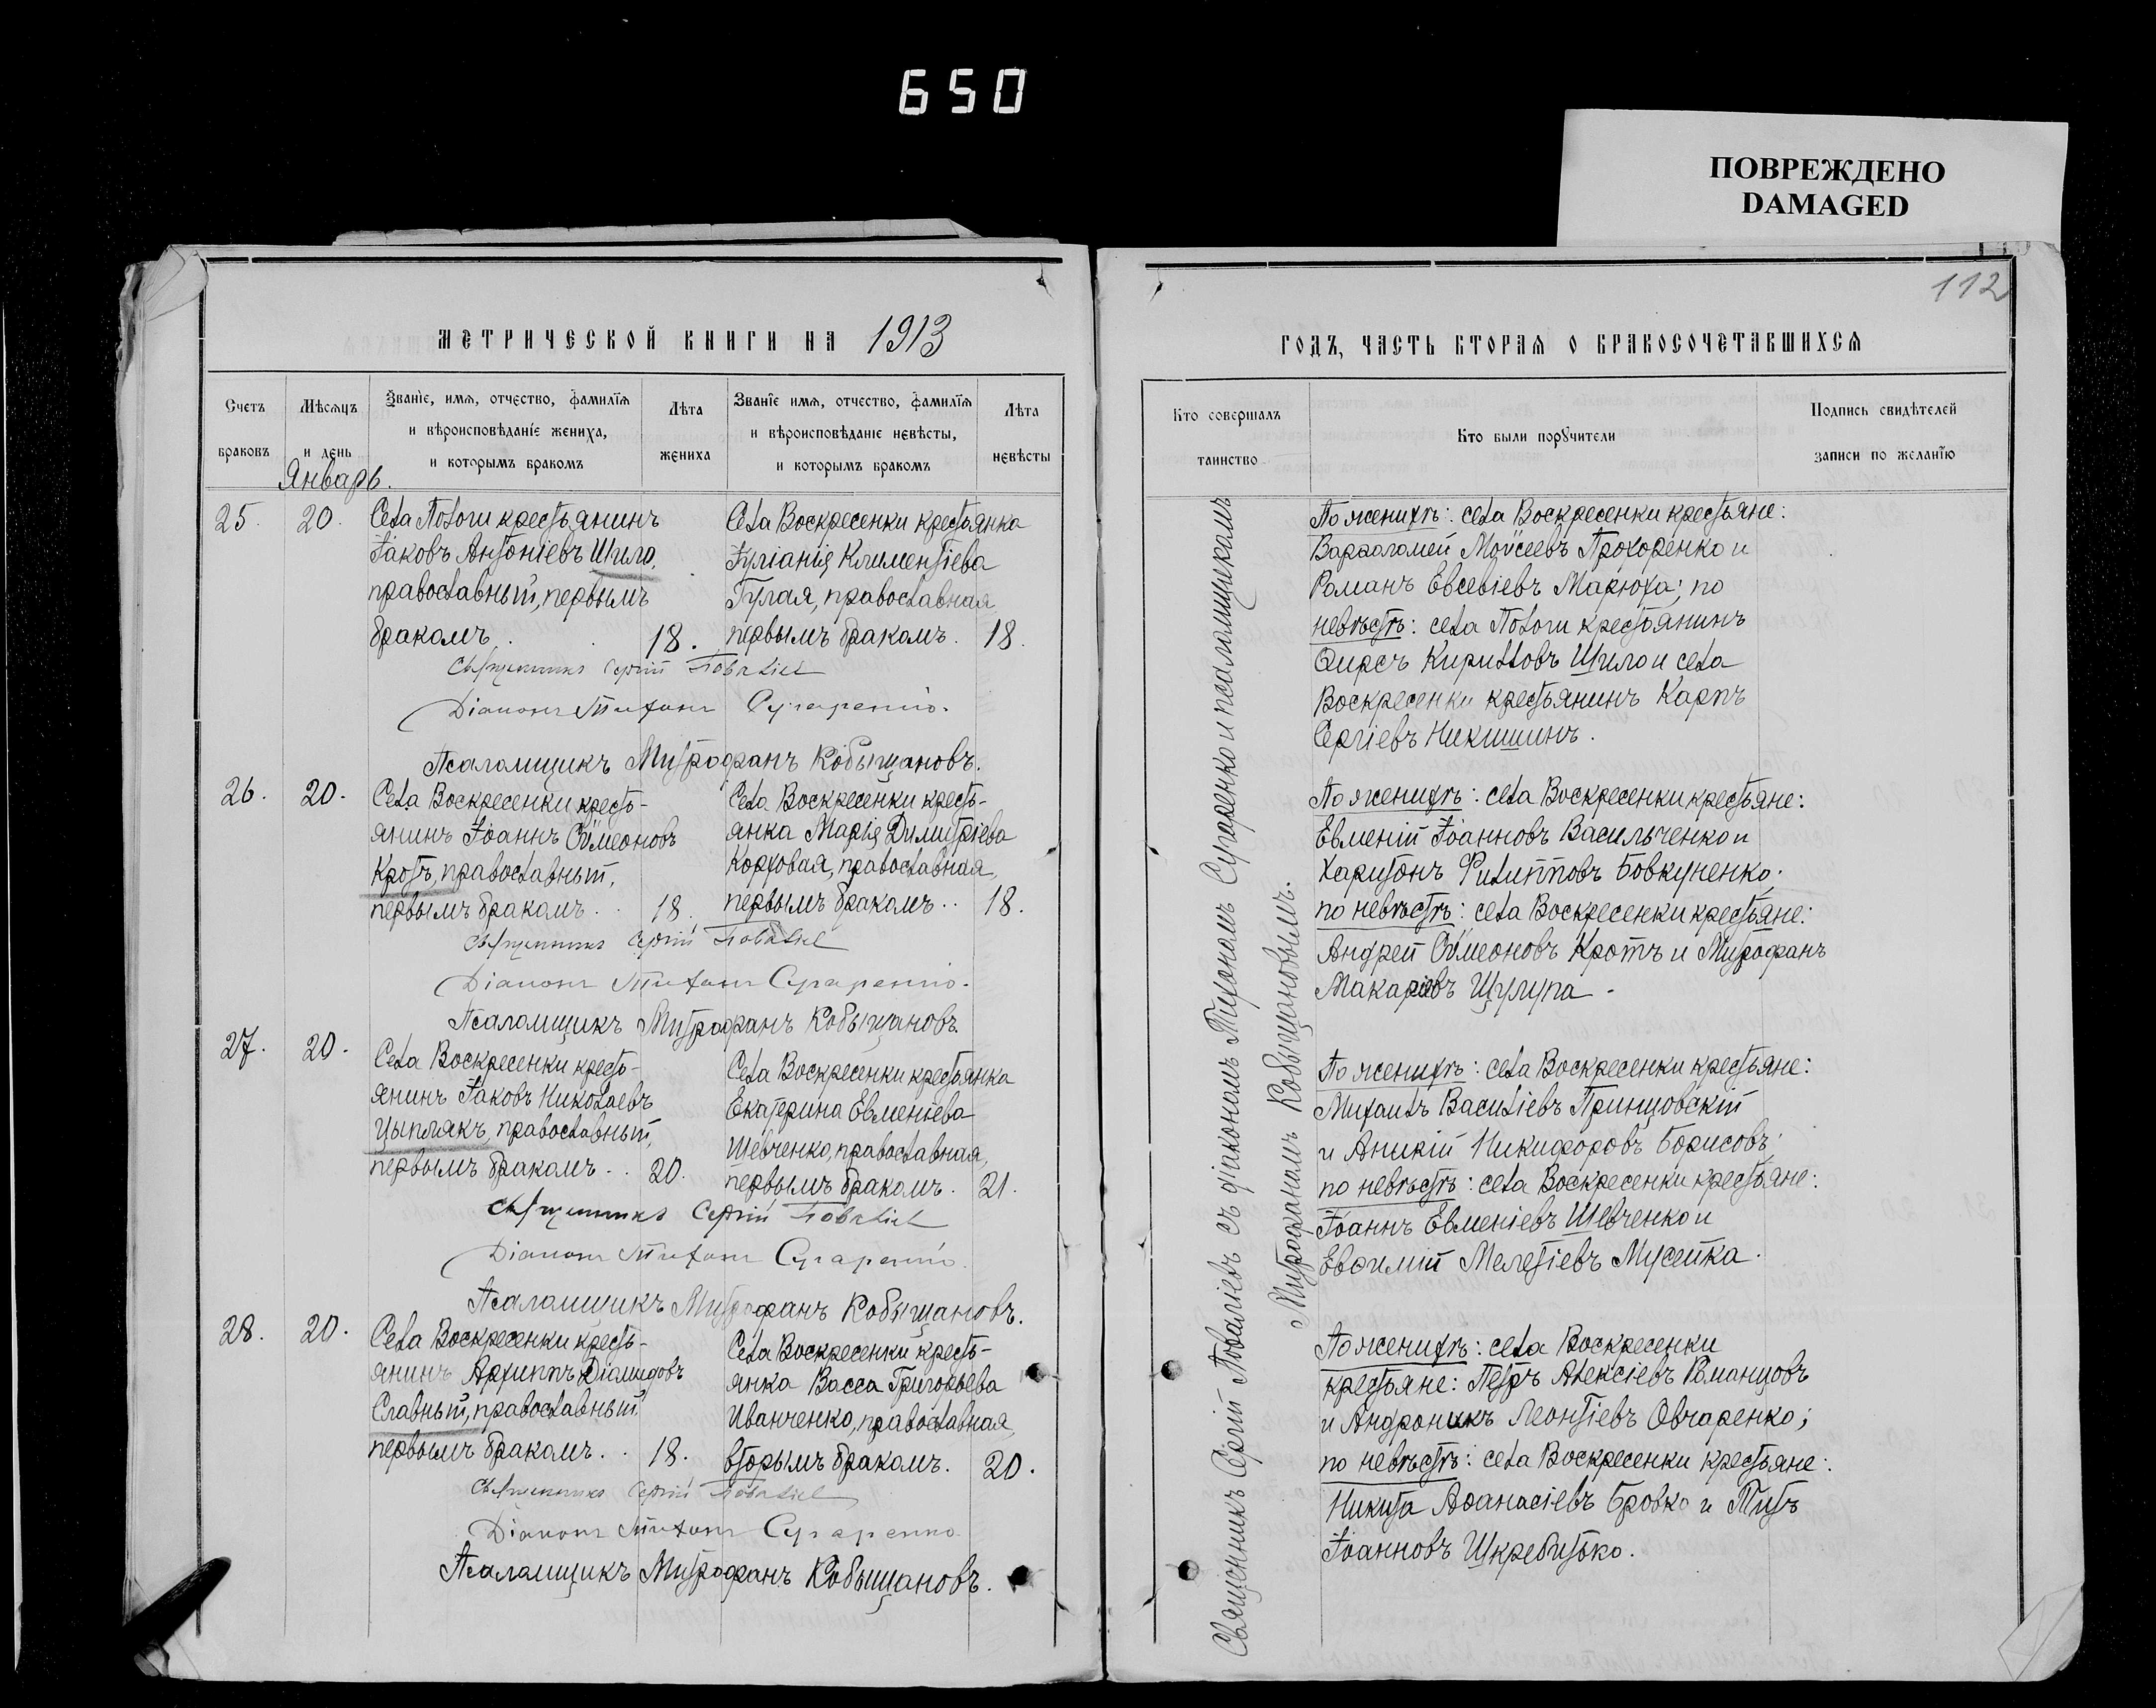 650
ПОВРЕЖДЕНО
DAMAGED
112
МЕТРИЧЕСКОЙ КНИГИ НА 1913
Счетъ браковъ
Мѣсяцъ и день
Званіе, имя, отчество, фамилія
и вѣроисповѣданіе жениха,
и которымъ бракомъ
Лѣта жениха
Званіе имя, отчество, фамилія
и вѣроисповѣданіе невѣсты,
и которымъ бракомъ
Лѣта невѣсты
Январь.
25. 20.
Села Пологи крестьянинъ
Іаковъ Антоніевъ Шило,
православный, первымъ
бракомъ. 18.
Села Воскресенки крестьянка
Іуліанія Климентіева
Гулая, православная
первымъ бракомъ. 18.
Священникъ Сергій Повалiевъ
Діаконъ Тихонъ Сухаренко.
Псаломщикъ Митрофанъ Кобыщановъ.
26. 20.
Села Воскресенки кресть-
янинъ Іоаннъ Сѵмеоновъ
Кротъ, православный,
первымъ бракомъ. 18.
Села Воскресенки кресть-
янка Марія Димитріева
Корховая, православная,
первымъ бракомъ. 18.
Священникъ Сергій Повалiевъ
Діаконъ Тихонъ Сухаренко.
Псаломщикъ Митрофанъ Кобыщановъ
27. 20.
Села Воскресенки кресть-
янинъ Іаковъ Николаевъ
Цыплякъ, православный,
первымъ бракомъ. 20.
Села Воскресенки крестьянка
Екатерина Евменіева
Шевченко, православная,
первымъ бракомъ. 21.
Священникъ Сергій Повалiевъ
Діаконъ Тихонъ Сухаренко.
Псаломщикъ Митрофанъ Кобыщановъ.
28. 20.
Села Воскресенки кресть-
янинъ Архиппъ Діамидовъ
Славный, православный
первымъ бракомъ. 18.
Села Воскресенки кресть-
янка Васса Григорьева
Иванченко, православная,
вторымъ бракомъ. 20.
Священникъ Сергій Повалiевъ
Діаконъ Тихонъ Сухаренко
Псаломщикъ Митрофанъ Кобыщановъ.
ГОДЪ, ЧАСТЬ ВТОРАЯ О БРАКОСОЧЕТАВШИХСЯ
Кто совершалъ таинство
Кто были поручители
Подпись свидѣтелей
записи по желанію
Священникъ Сергій Повалiевъ съ діакономъ Тихономъ Сухаренко и псаломщикомъ
Митрофаномъ Кобыщановымъ.
По женихѣ: села Воскресенки крестьяне:
Варфоломей Моѵсеевъ Прохоренко и
Романъ Евсевіевъ Марюха; по
невѣстѣ: села Пологи крестьянинъ
Ѳирсъ Кирилловъ Шило и села
Воскресенки крестьянинъ Карпъ
Сергіевъ Никишинъ.
По женихѣ: села Воскресенки крестьяне:
Евменій Іоанновъ Васильченко и
Харитонъ Филипповъ Бовкуненко;
по невѣстѣ: села Воскресенки крестьяне:
Андрей Сѵмеоновъ Кротъ и Митрофанъ
Макаріевъ Щулипа.
По женихѣ: села Воскресенки крестьяне:
Михаилъ Василіевъ Принцовскій
и Аникій Никифоровъ Борисовъ;
по невѣстѣ: села Воскресенки крестьяне:
Іоаннъ Евменіевъ Шевченко и
Евѳимій Мелетіевъ Мусейка.
По женихѣ: села Воскресенки
крестьяне: Петръ Алексіевъ Романцовъ
и Андроникъ Леонтіевъ Овчаренко;
по невѣстѣ: села Воскресенки крестьяне:
Никита Аѳанасіевъ Бровко и Титъ
Іоанновъ Шкребитько.